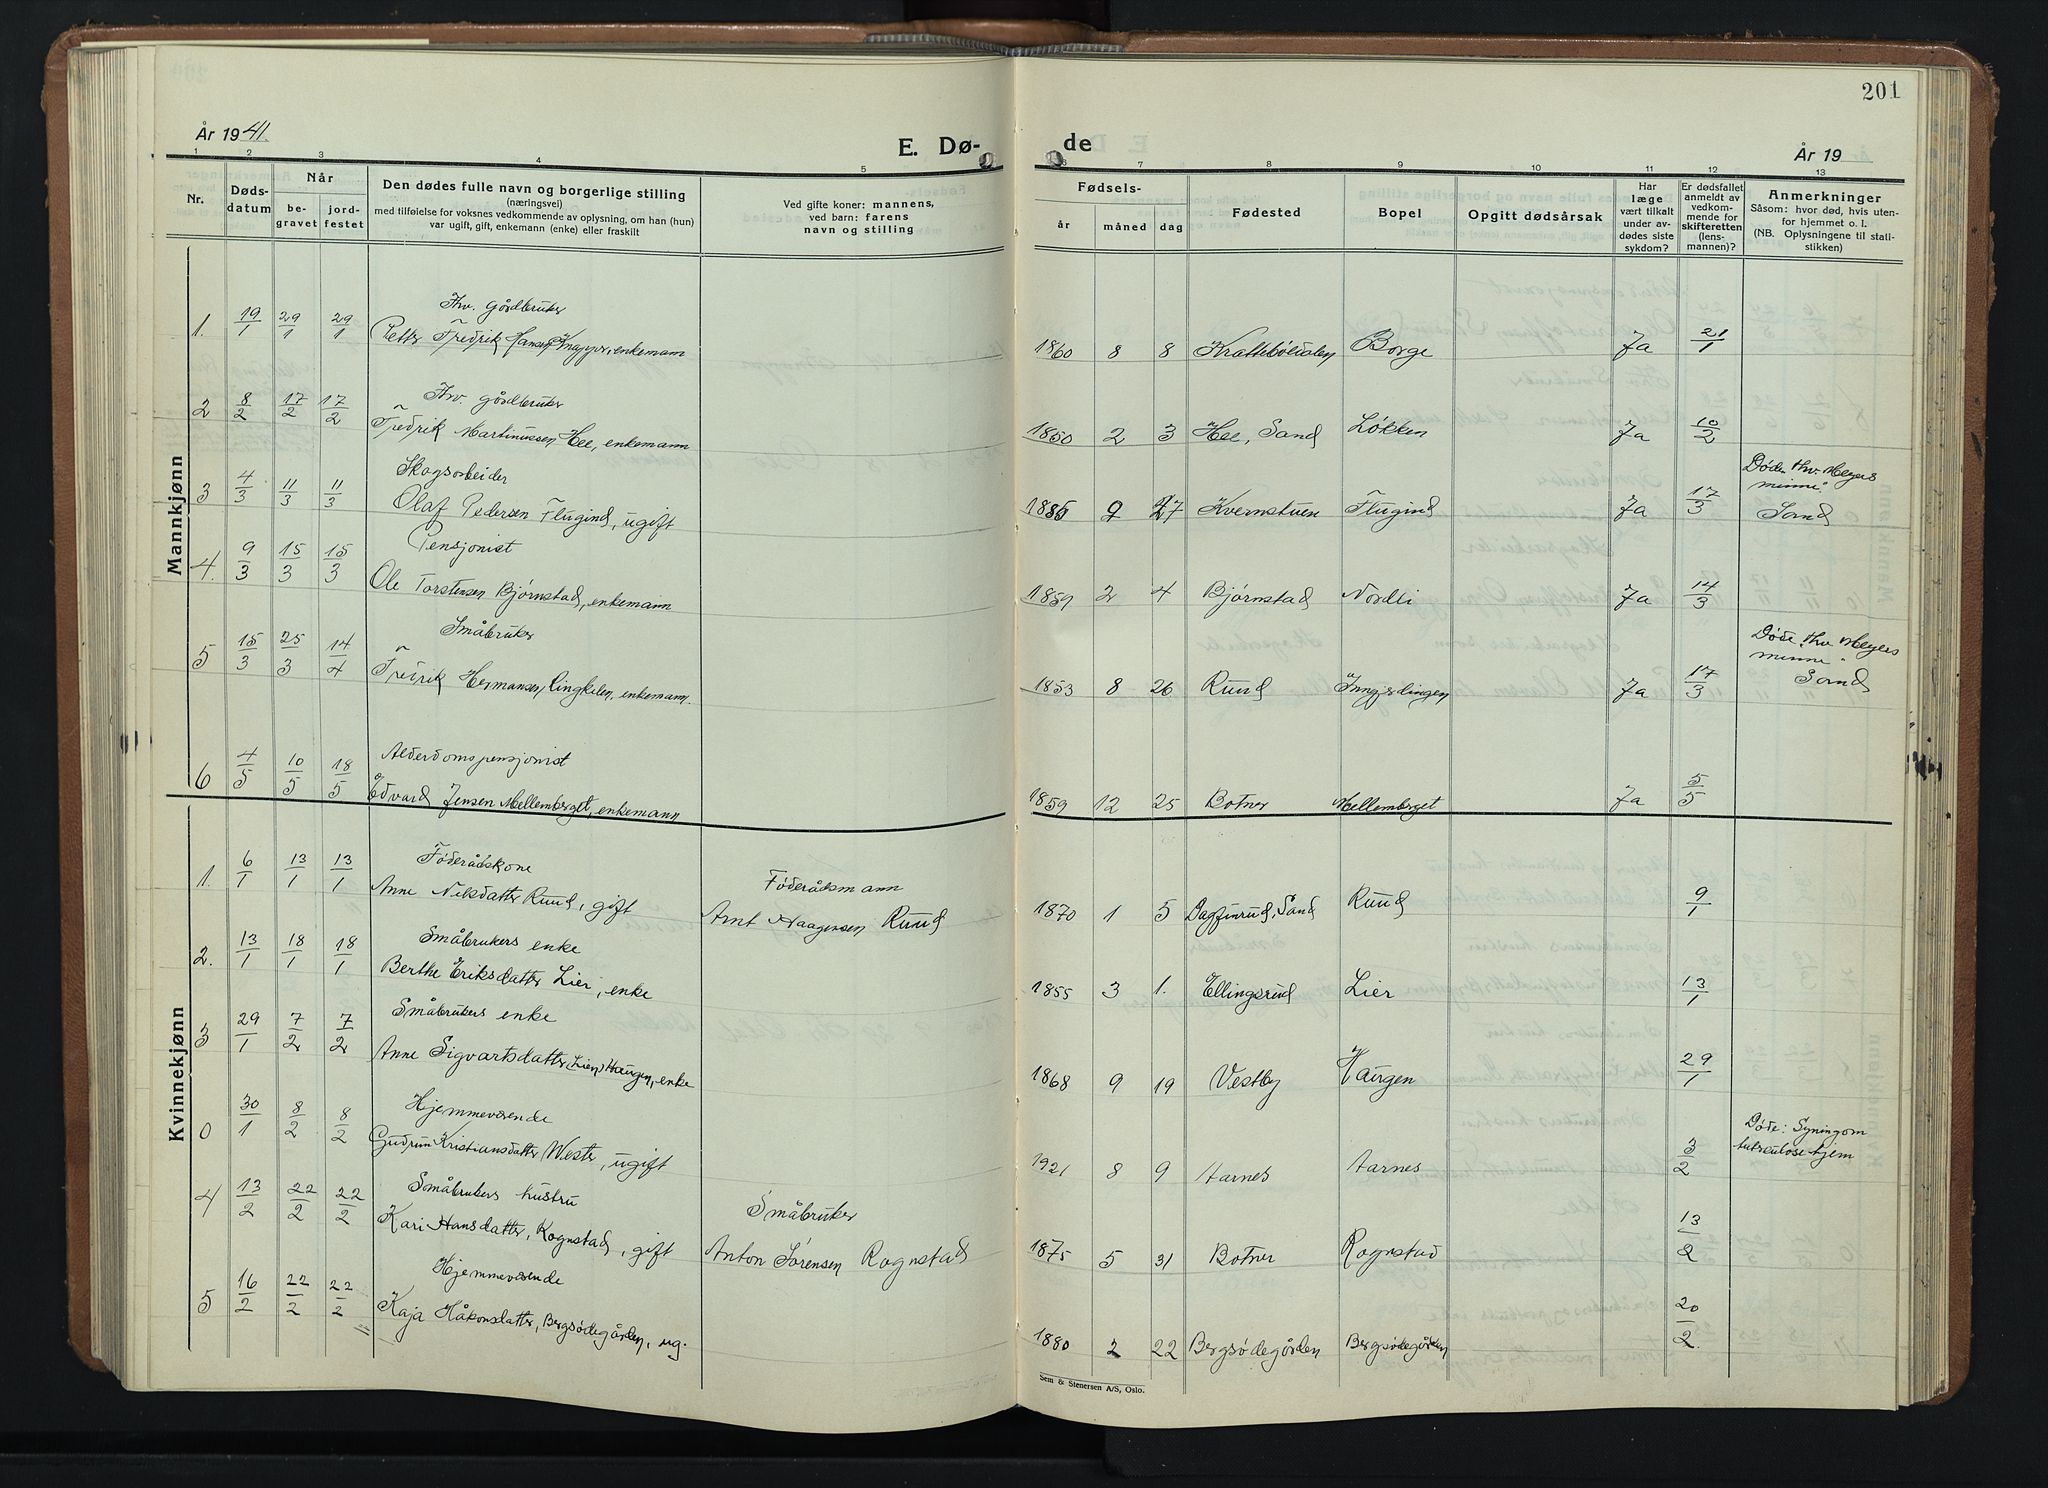 201
År 1941.
E. Dø-
de
År 19
1 2 3 4 5
6 7 8 9 10 11 12 13
Nr.
Døds-
datum
Når
be-
gravet
jord-
festet
Den dødes fulle navn og borgerlige stilling
(næringsvei)
med tilføielse for voksnes vedkommende av oplysning, om han (hun)
var ugift, gift, enkemann (enke) eller fraskilt
Ved gifte koner: mannens,
ved barn: farens
navn og stilling
Fødsels-
år måned dag
Fødested
Bopel
Opgitt dødsårsak
Har
læge
vært tilkalt
under av-
dødes siste
sykdom?
Er dødsfallet
anmeldt av
vedkom-
mende for
skifteretten
(lens-
mannen)?
Anmerkninger
Såsom: hvor død, hvis uten-
for hjemmet o. l.
(NB. Oplysningene til stati-
stikken)
Mankjønn
Fhv. gårdbruker
1. 19/1 29/1 29/1 Petter Fredrik Hansen Knapper, enkemann 1860 8 8 Krattebøldalen Borge Ja 21/1
Fhv. gårdbruker
2 8/2 17/2 17/2 Fredrik Martinussen Hee, enkemann 1850 2 3 Hee, Sand Løkken Ja 10/2
Skogsarbeider
3 4/3 11/3 11/3 Olaf Pedersen Flugind, ugift 1885 9 27 Kvernstuen Flugind Ja 17/3 Døde: "Thv. Meyers minne" Sand
Pensjonist
4. 9/3 15/3 15/3 Ole Torstensen Bjørnstad, enkemann 1859 2 4 Bjørnstad Nordli Ja 14/3
Småbruker
5 15/3 25/3 14/4 Fredrik Hermansen Lingkelen, enkemann. 1853 8 26 Ruud Inngjerdingen Ja 17/3 Døde: "Thv Meyers minne" Sand
Alderdomspensjonist
6 4/5 10/5 18/5 Edvard Jensen Mellemberget, enkemann 1859 12 25 Botner Mellemberget Ja 5/5
Kvinnekjønn
Føderådskone Føderådsmann
1. 6/1 13/1 13/1 Anne Nilsdatter Ruud, gift Arnt Haagensen Ruud 1870 1 5 Dagfinrud, Sand Ruud 9/1
Småbrukers enke
2. 13/1 18/1 18/1 Berthe Eriksdatter Lier, enke 1855 3 1. Ellingsrud Lier 13/1
Småbrukers enke
3 29/1 7/2 7/2 Anne Sigvartsdatter (Lien) Haugen, enke 1868 9 19 Vestby Haugen 29/1
Hjemmeværende
0 30/1 8/2 8/2 Gudrun Kristiansdatter Wester, ugift 1921 8 9 Aarnes Aarnes 3/2 Døde: Syningom tuberculose hjem
Småbrukers hustru Småbruker
4 13/2 22/2 22/2 Kari Hansdatter, Rognstad, gift Anton Sørensen Rognstad 1875 5 31 Botner Rognstad 13/2
Hjemmeværende
5 16/2 22/2 22/2 Kaja Håkonsdatter, Bergsødegården, ug. 1880 2 22 Bergsødegården Bergsødegården 20/2
Sem & Stenersen A/S, Oslo.